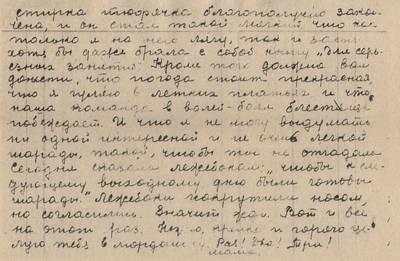 стирка тюфячка благополучно закон-
чена и он стал такой мягкий что как
только я на него лягу, так и засну
хотя бы даже брала с собой книгу „для серь-
езных занятий". Кроме того должна Вам
донести, что погода стоит прекрасная,
что я гуляю в летних платьях и что
наша команда в волей-боле блестяще
побеждает. И что я не могу выдумать
ни одной интересной и не очень легкой
шарады, такой, чтобы ты не отгадала
Сегодня сказали лежебокам: „чтобы к сле-
дующему выходному дню были готовы
шарады". Лежебоки покрутили носом,
но согласились. Значит жди. Вот и все
на этот раз. крепко и горячо це-
лую тебя в мордашку. Раз! Два! Три!
мама.